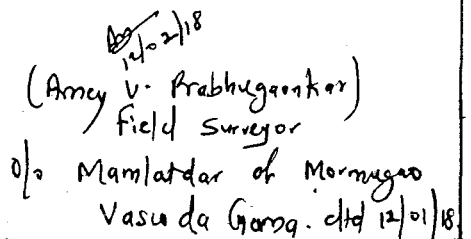 12/02/18
(Amey V. Prabhugaonkar)
Field Surveyor
O/o Mamlatdar of Mormugao
Vasco da Gama. dtd 12/01/18